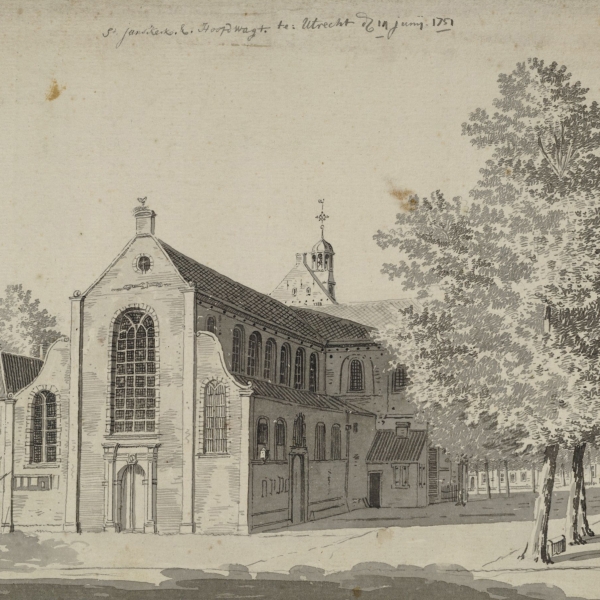 St Janskerk. & Hoofdwagt. te: Utrecht d 19 Junij. 1751